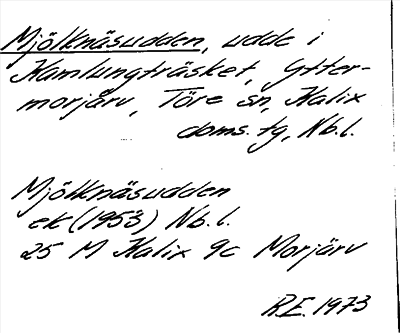 Mjölknäsudden, udde i
Kamlungträsket, Ytter-
morjärv, Töre sn, Kalix
doms. tg, Nb.l.
Mjölknäsudden
ek (1953) Nb.l.
25 M Kalix 9c Morjärv
R.E. 1973